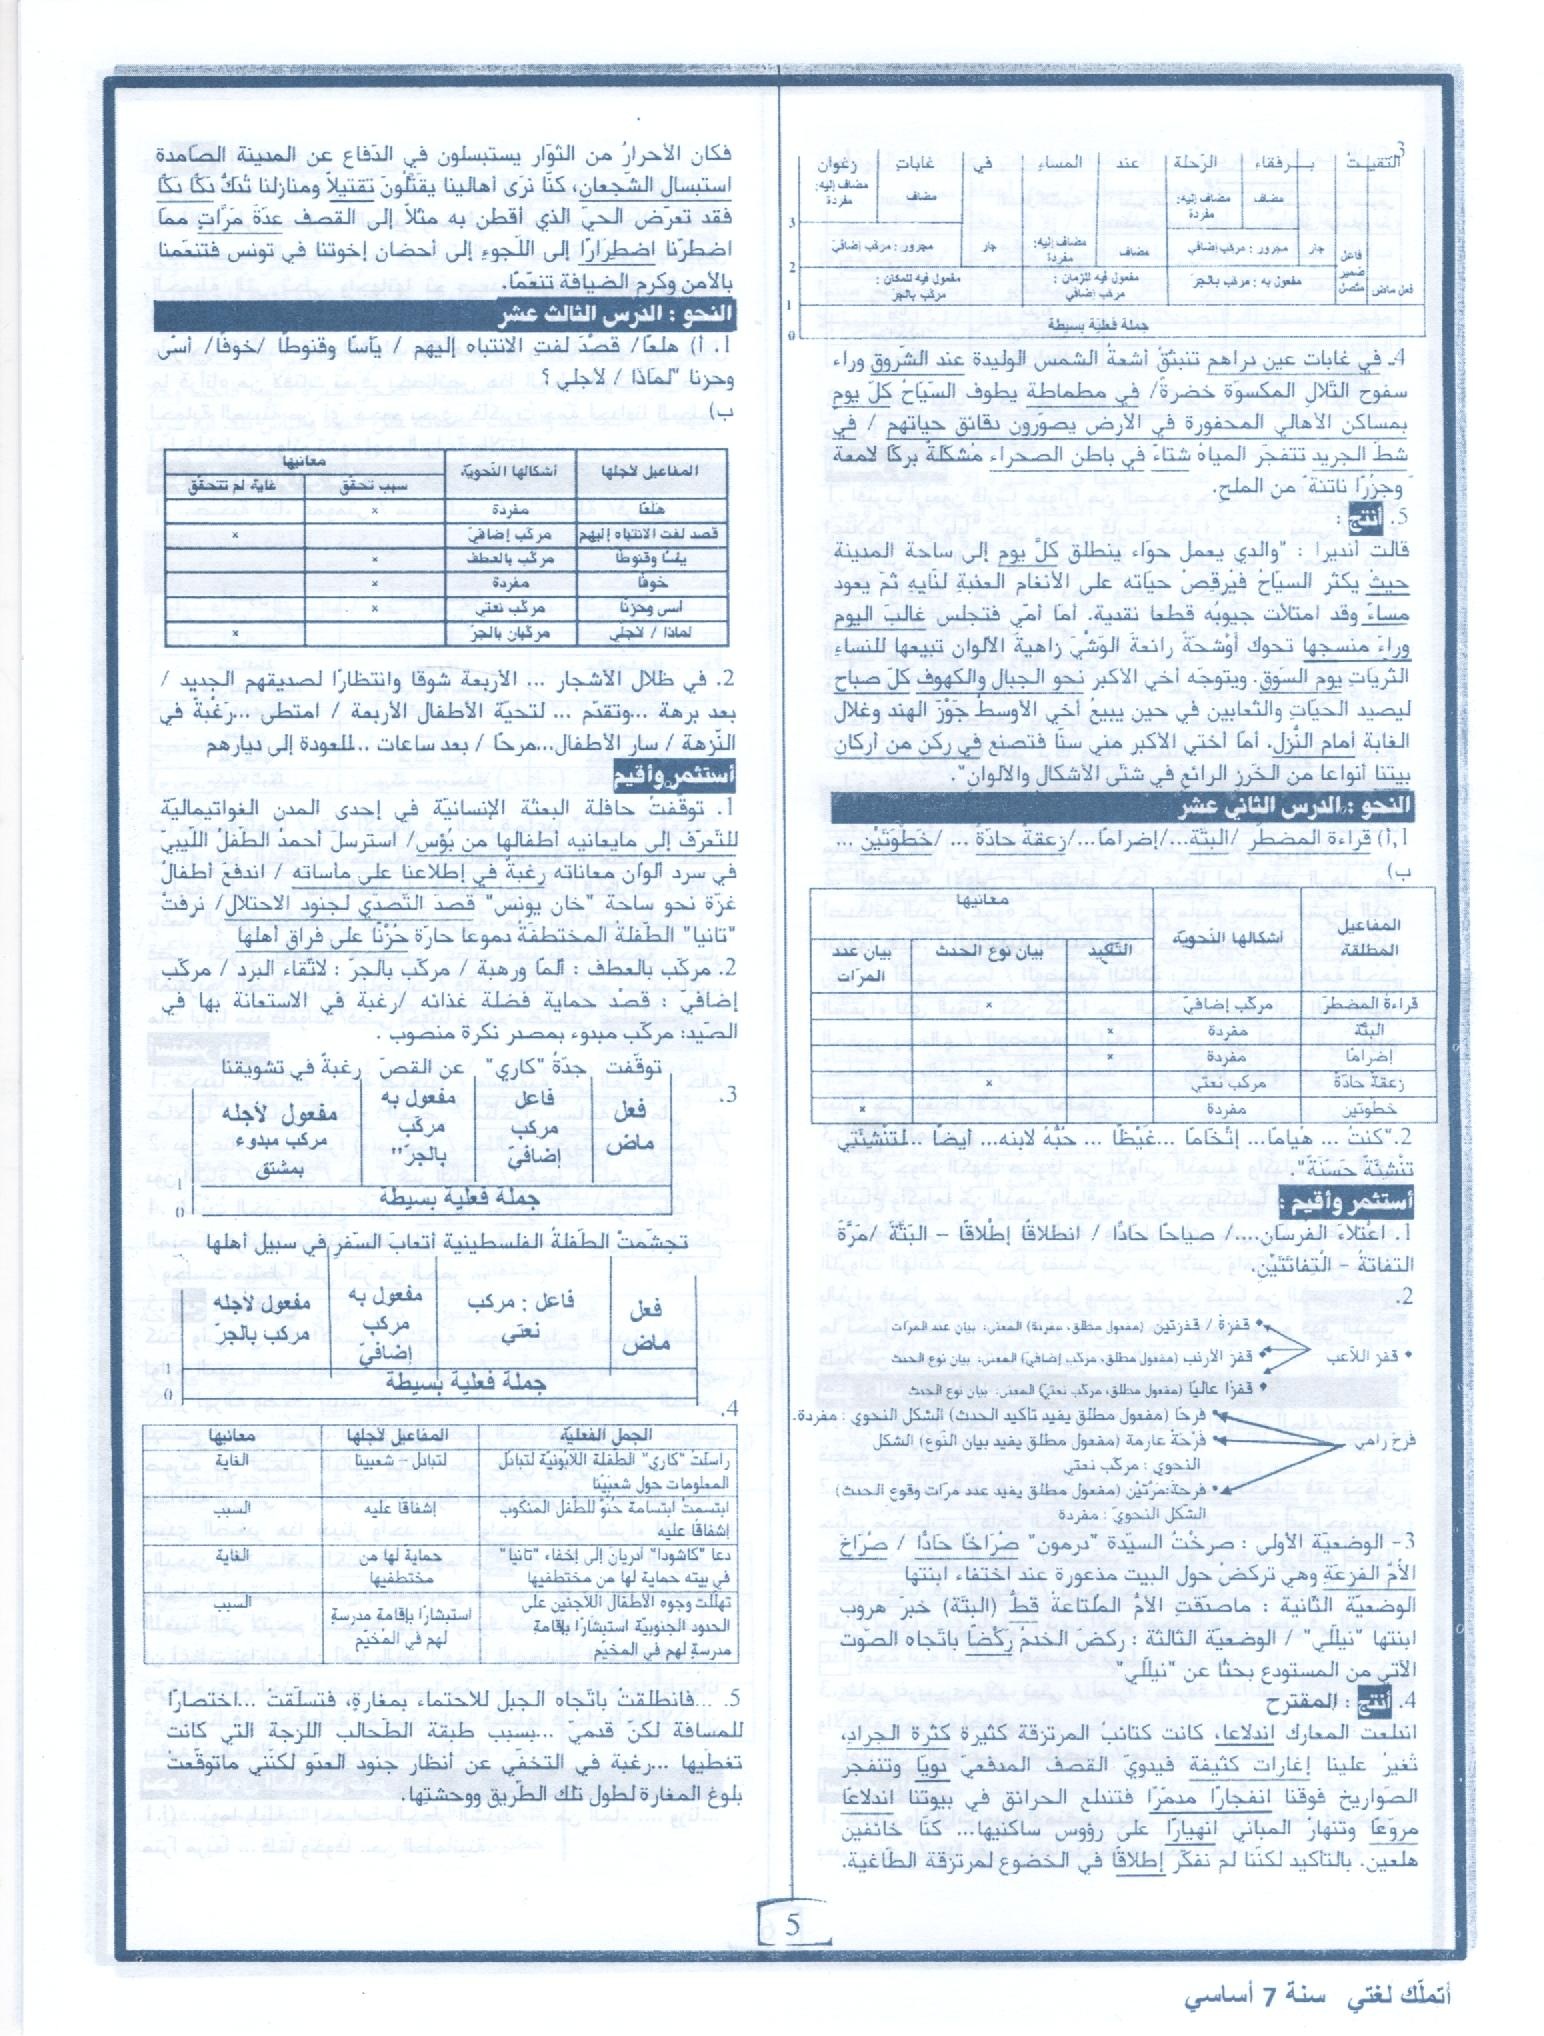 3.
التقيتُ بـرفقاء الرّحلة عند المساءِ في غاباتِ زغوان
مضاف مضاف إليه: مفردة مضاف مضاف إليه: مفردة
فاعل ضمير متّصل جار مجرور : مركب إضافيّ مضاف مضاف إليه: مفردة جار مجرور : مركب إضافيّ
3
2
فعل ماض مفعول به : مركب بالجرّ مفعول فيه للزمان : مركب إضافيّ مفعول فيه للمكان : مركب بالجرّ
1
جملة فعليّة بسيطة
0
4ـ في غابات عين دراهم تنبثقُ أشعةُ الشمس الوليدة عند الشّروق وراء
سفوح التّلال المكسوّة خضرةً/ في مطماطة يطوف السيّاحُ كلّ يومٍ
بمساكن الأهالي المحفورة في الأرض يصوّرون دقائق حياتهم / في
شطّ الجريد تتفجّر المياه شتاءً في باطن الصحراء مُشكّلةً بركًا لامعة
وجزُرًا ناتئةً من الملح.
5. أنتج :
قالت أنديرا : "والدي يعمل حوّاء ينطلق كلَّ يوم إلى ساحة المدينة
حيث يكثر السيّاح فيُرقِصُ حيّاته على الأنغام العذبةِ لنَايهِ ثمّ يعود
مساءً وقد امتلأت جيوبُه قطعا نقدية. أما أمّي فتجلس غالبَ اليوم
وراءَ منسجها تحوك أوْشحةً رائعةَ الوَشْيَ زاهيةَ الألوان تبيعها للنساءِ
الثّريّاتِ يومَ السّوَق. ويتوجّه أخي الأكبر نحو الجبال والكهوف كلّ صباح
ليصيد الحيّاتِ والثعابين في حين يبيعُ أخي الأوسطُ جَوْزَ الهند وغلال
الغابة أمام النُّزل. أمّا أختي الأكبر مني سنًّا فتصنع في ركن من أركانِ
بيتنا أنواعا من الخَرزِ الرائعِ في شتّى الأشكال والألوانِ".
النحو : الدرس الثاني عشر
1.أ) قراءة المضطرّ /البتّة.../إضرامًا.../زعقةً حادّةً ... /خَطْوَتَيْنِ ...
ب)
المفاعيل المطلقة أشكالها النّحويّة معانيها
التّأكيد بيان نوع الحدث بيان عدد المرّات
قراءةُ المضطرّ مركّب إضافيّ ×
البتّة مفردة ×
إضرامًا مفردة ×
زعقةً حادّةً مركّب نعتيّ ×
خطوتين مفردة ×
2."كنتُ ... هُيامًا... إتْخَامًا ...غيْظًا ... حبُّهُ لابنه... أيضًا ..لتنْشئتي
تنْشِئَةً حَسَنَةً".
أستثمر وأقيم :
1. اعْتلاءَ الفُرسان..../ صياحًا حادًّا / انطلاقًا إطْلاقًا – البَتَّةَ /مَرَّةً
التفاتةً – الْتِفاتَتَيْنِ.
2.
• قفز اللاّعب
• قفزة / قفزتين (مفعول مطلق، مفردة) المعنى: بيان عدد المرات
• قفز الأرنب (مفعول مطلق، مركب إضافيّ) المعنى: بيان نوع الحدث
• قفزًا عاليًا (مفعول مطلق، مركب نعتيّ) المعنى: بيان نوع الحدث
فرحَ رامي
• فرحًا (مفعول مطلق يفيد تأكيد الحدث) الشكل النحوي : مفردة.
• فرْحةً عارمة (مفعول مطلق يفيد بيان النّوع) الشكل
النحوي : مركّب نعتي
• فرحة:مَرّتيْن (مفعول مطلق يفيد عدد مرّات وقوع الحدث)
الشّكل النحويّ: مفردة
3- الوضعيّة الأولى : صرختُ السيّدة "درمون" صُرَاخًا حَادًّا / صرَاخَ
الأمِّ الفزعةِ وهي تركضُ حول البيت مذعورة عند اختفاء ابنتها
الوضعيّة الثّانية : ماصدّقتِ الأمُّ المُلتاعةُ قطُّ (البتّة) خبرَ هروب
ابنتها "نيلّلي" / الوضعيّة الثالثة : ركضَ الخدمُ رَكْضًا باتّجاه الصّوت
الآتي من المستودع بحثًا عن "نيلّلي"
4. أنتج : المقترح
اندلعت المعارك اندلاعا، كانت كتائبُ المرتزقة كثيرة كثرةَ الجراد،
تُغيرُ علينا إغارات كثيفة فيدويّ القصف المدفعي دويّا وتنفجر
الصّواريخ فوقنا انفجارًا مدمّرًا فتندلع الحرائق في بيوتنا اندلاعًا
مروّعًا وتنهارُ المباني انهيارًا على رؤوس ساكنيها... كنّا خائفين
هلعين. بالتأكيد لكنّنا لم نفكّر إطلاقًا في الخضوع لمرتزقة الطّاغية.
فكان الأحرارُ من الثوّار يستبسلون في الدّفاع عن المدينة الصّامدة
استبسال الشّجعان، كنّا نرَى أهالينا يقتّلونَ تقتيلاً ومنازلنا تُدَكُّ دَكًّا دَكًّا
فقد تعرّض الحيّ الذي أقطن به مثلاً إلى القصف عدّةَ مَرّاتٍ ممّا
اضطرّنا اضطِرارًا إلى اللّجوءِ إلى أحضان إخوتنا في تونس فتنعّمنا
بالأمن وكرم الضيافة تنعّمًا.
النحو : الدرس الثالث عشر
1. أ) هلعًا/ قصْدَ لفتِ الانتباه إليهم / يأسًا وقنوطًا /خوفًا/ أسًى
وحزنا "لماذا / لأجلي ؟
ب)
المفاعيل لأجلها أشكالها النّحويّة معانيها
سبب تحقّق غاية لم تتحقّق
هلعًا مفردة ×
قصد لفت الانتباه إليهم مركّب إضافيّ ×
يقسًا وقنوطًا مركّب بالعطف ×
خوفًا مفردة ×
أسى وحزنًا مركّب نعتي ×
لماذا / لأجلي مركّبان بالجرّ ×
2. في ظلال الأشجار ... الأربعة شوقا وانتظارًا لصديقهم الجديد /
بعد برهة ...وتقدّم ... لتحيّة الأطفال الأربعة / امتطى ...رَغْبةً في
النّزهة / سار الأطفال...مرحًا / بعد ساعات ..للعودة إلى ديارهم
أستثمر وأقيم
1. توقّفتْ حافلة البعثة الإنسانيّة في إحدى المدن الغواتيماليّة
للتّعرّف إلى مايعانيه أطفالها من بُؤس/ استرسل أحمدُ الطّفلُ اللّيبيّ
في سرد ألوان معاناته رغبةً في إطلاعنا على مأساته / اندفع أطفالُ
غزّة نحو ساحة "خان يونس" قصدَ التّصدّي لجنود الاحتلال/ نرفتْ
"تانيا" الطّفلة المختطفَةُ دموعا حارّة حُزْنًا على فراق أهلها
2. مركّب بالعطف : ألمًا ورهبة / مركّب بالجرّ : لاتّقاء البرد / مركّب
إضافيّ : قصْدَ حماية فضلة غذائه /رغبة في الاستعانة بها في
الصّيد: مركّب مبدوء بمصدر نكرة منصوب .
3.
توقّفت جدّةُ "كاري" عن القصّ رغبةً في تشويقنا
فعل ماض فاعل مركب إضافيّ مفعول به مركّب بالجرّ" مفعول لأجله مركب مبدوء بمشتق
1
جملة فعلية بسيطة
0
تجشّمتْ الطّفلةُ الفلسطينيّة أتعابَ السّفرِ في سبيل أهلها
فعل ماض فاعل : مركب نعتي مفعول به مركب إضافيّ مفعول لأجله مركب بالجرّ
1
جملة فعلية بسيطة
0
4.
الجمل الفعليّة المفاعيل لأجلها معانيها
راسلتْ "كاري" الطفلة اللابونيّة لتبادُل المعلومات حول شعبيْنا لتبادل – شعبينا الغاية
ابتسمتْ ابتسامة حُنُوّ للطّفل المنكوب إشفاقا عليه إشفاقا عليه السبب
دعا "كاشودا" أدريان إلى إخفاء "تانيا" في بيته حماية لها من مختطفيها حماية لها من مختطفيها الغاية
تهلّلت وجوه الأطفال اللاّجئين على الحدود الجنوبيّة استبشارًا بإقامة مدرسةٍ لهم في المخيّم استبشارًا بإقامة مدرسةٍ لهم في المُخيّم السبب
5. ...فانطلقتُ باتّجاه الجبل للاحتماء بمغارةٍ، فتسلّقت ...اختصارًا
للمسافة لكنّ قدميّ ...بسبب طبقة الطّحالب اللّزجة التي كانت
تغطيها ...رغبة في التخفي عن أنظار جنود العدوّ لكنّني ماتوقّعت
بلوغ المغارة لطول تلك الطّريق ووحشتها.
5
أتملّك لغتي سنة 7 أساسي